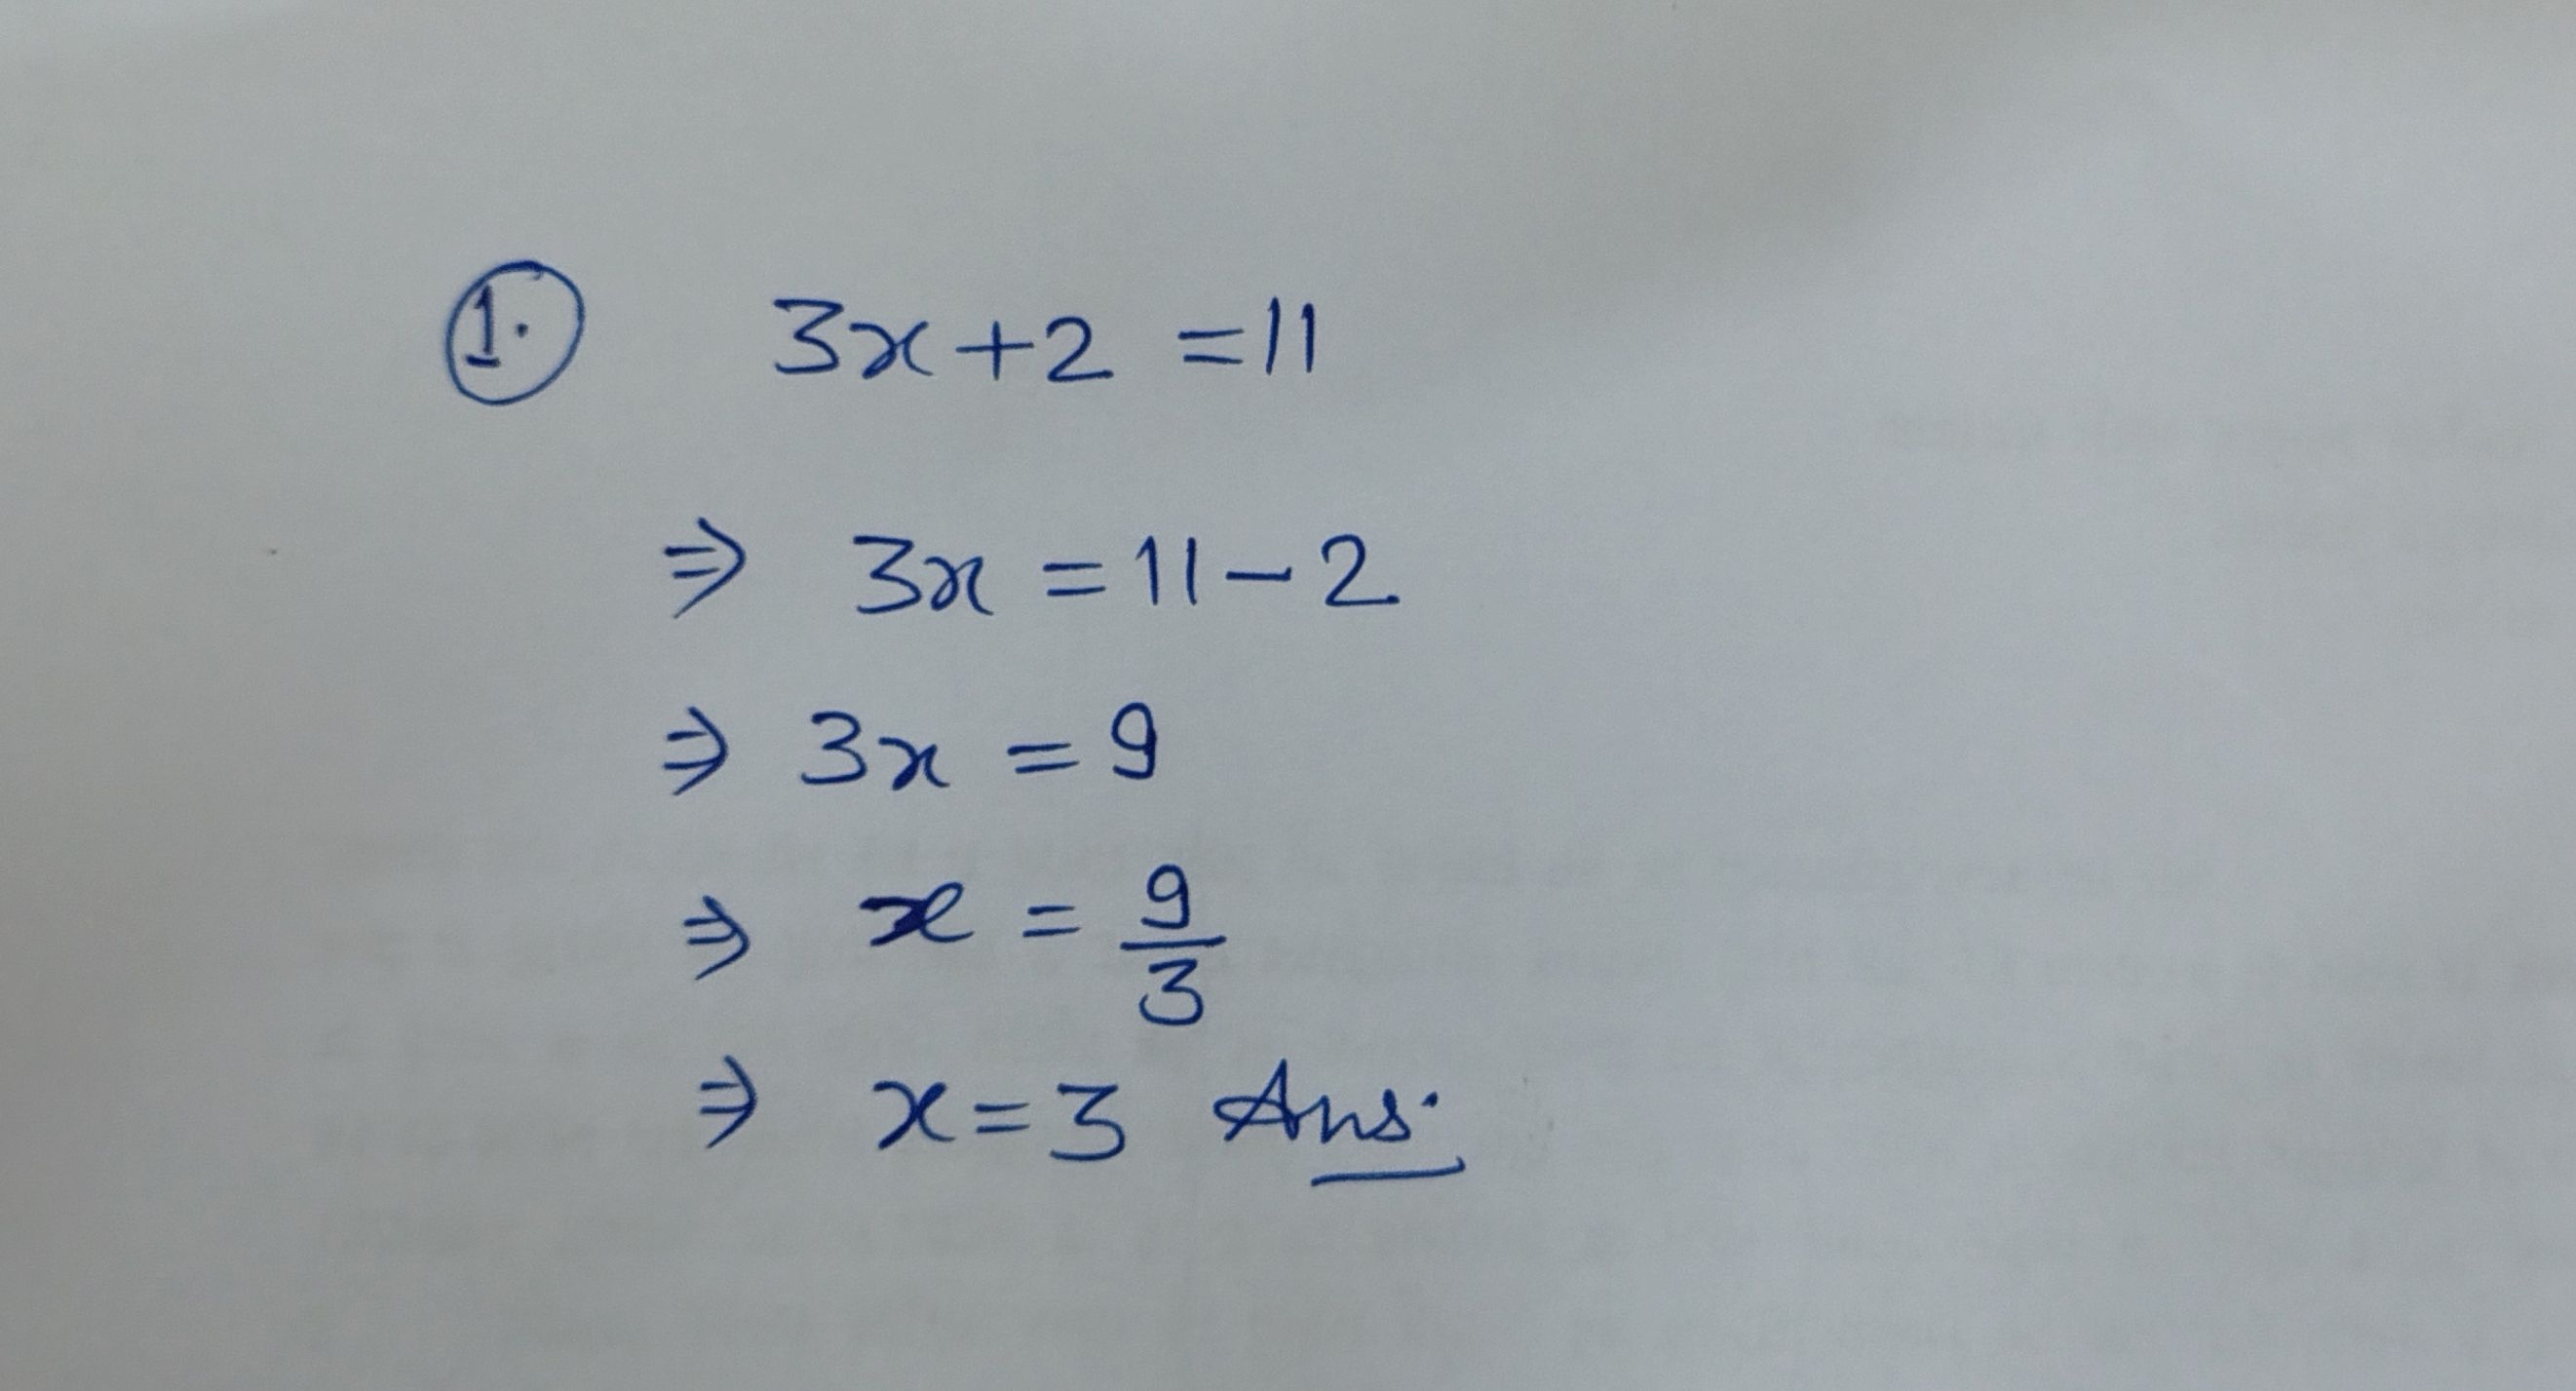 1. 3x+2 =11
⇒ 3x = 11-2
⇒ 3x = 9
⇒ x = 9/3
⇒ x=3 Ans.